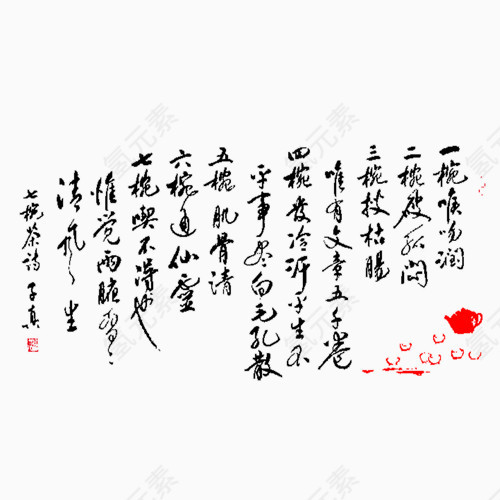 一椀喉吻潤
二椀破孤悶
三椀搜枯腸
唯有文章五千卷
四椀发轻汗平生不
平事尽向毛孔散
五椀肌骨清
六椀通仙靈
七椀喫不得也
惟觉兩腋習々
清风生
七椀茶诗 子真
氢元素